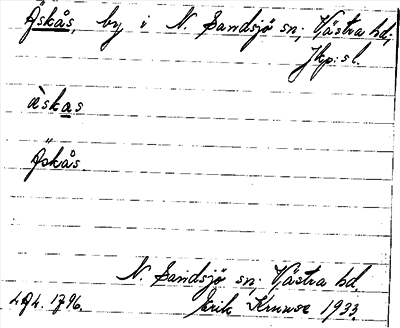 Äskås, by i N. Sandsjö sn; Västra hd;
Jkp:s l.
äskas
Äskås.
N. Sandsjö sn; Västra hd.
1796. Erik Kruuse 1933.